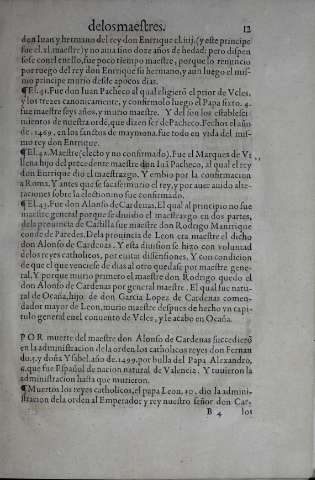 delosmaestres. 12
don Iuan y hermano del rey don Enrique el.iiij. (y este principe
fue el.xl.maestre) y no auia sino doze años de hedad: pero dispen
sose con el en esso, fue poco tiempo maestre, porque lo renuncio
por ruego del rey don Enrique su hermano, y aun luego el mis-
mo principe murio desde apocos dias.
¶ El.41. Fue don Iuan Pacheco al qual eligierõ el prior de Vcles,
y los trezes canonicamente, y confirmolo luego el Papa sixto. 4.
fue maestre seys años, y murio maestre. Y del son los establesci-
mientos de nuestra ordẽ, que dizen ser de Pacheco. Fechos el año
de .1469. en los sanctos de maymona. fue todo en vida del mis-
mo rey don Enrique.
¶ El.42. Maestre (electo y no confirmado). Fue el Marques de Vi
llena hijo del precedente maestre don Iuã Pacheco, al qual el rey
don Enrique dio el maestrazgo. Y embio por la confirmacion
a Roma. Y antes que se sacasse murio el rey, y por auer auido alte-
raciones sobre la election no fue confirmado.
¶ El.43. Fue don Alonso de Cardenas. El qual al principio no fue
maestre general porque se diuidio el maestrazgo en dos partes,
de la prouincia de Castilla fue maestre don Rodrigo Manrrique
conde de Paredes. De la prouincia de Leon era maestre el dicho
don Alonso de Cardenas. Y esta diuision se hizo con voluntad
de los reyes catholicos, por euitar dissensiones. Y con condicion
de que el que venciesse de dias al otro quedasse por maestre gene-
ral. Y porque murio primero el maestre don Rodrigo quedo el
don Alonso de Cardenas por general maestre. El qual fue natu-
ral de Ocaña, hijo de don Garcia Lopez de Cardenas comen-
dador mayor de Leon, murio maestre despues de hecho vn capi-
tulo general en el conuento de Vcles, y le acabo en Ocaña.
POR muerte del maestre don Alonso de Cardenas succedierõ
en la administracion de la orden los catholicos reyes don Fernan
do.5. y doña Ysabel. año de.1499. por bulla del Papa Alexandro,
6. que fue Español de nacion natural de Valencia. Y tuuieron la
administracion hasta que murieron.
¶ Muertos los reyes catholicos, el papa Leon. 10. dio la admini-
stracion de la orden al Emperador y rey nuestro señor don Car-
B 4 los